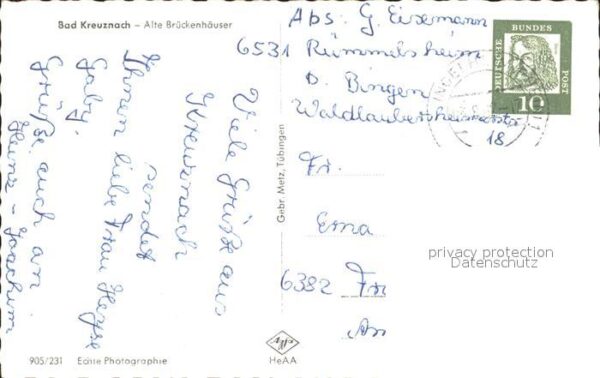 Bad Kreuznach – Alte Brückenhäuser
Abs. G. Eisemann
6531 Rümmelsheim
b. Bingen
Waldlaubersheimerstr.
18
DEUTSCHE BUNDES POST
10
Viele Grüße aus
Kreuznach
sendet
Ihnen liebe Frau Heyse
Gaby.
Grüße auch an
Heinz-Joachim
Gebr. Metz, Tübingen
Fr.
Erna
6382 Fr
An
privacy protection
Datenschutz
905/231 Echte Photographie
Agfa
HeAA